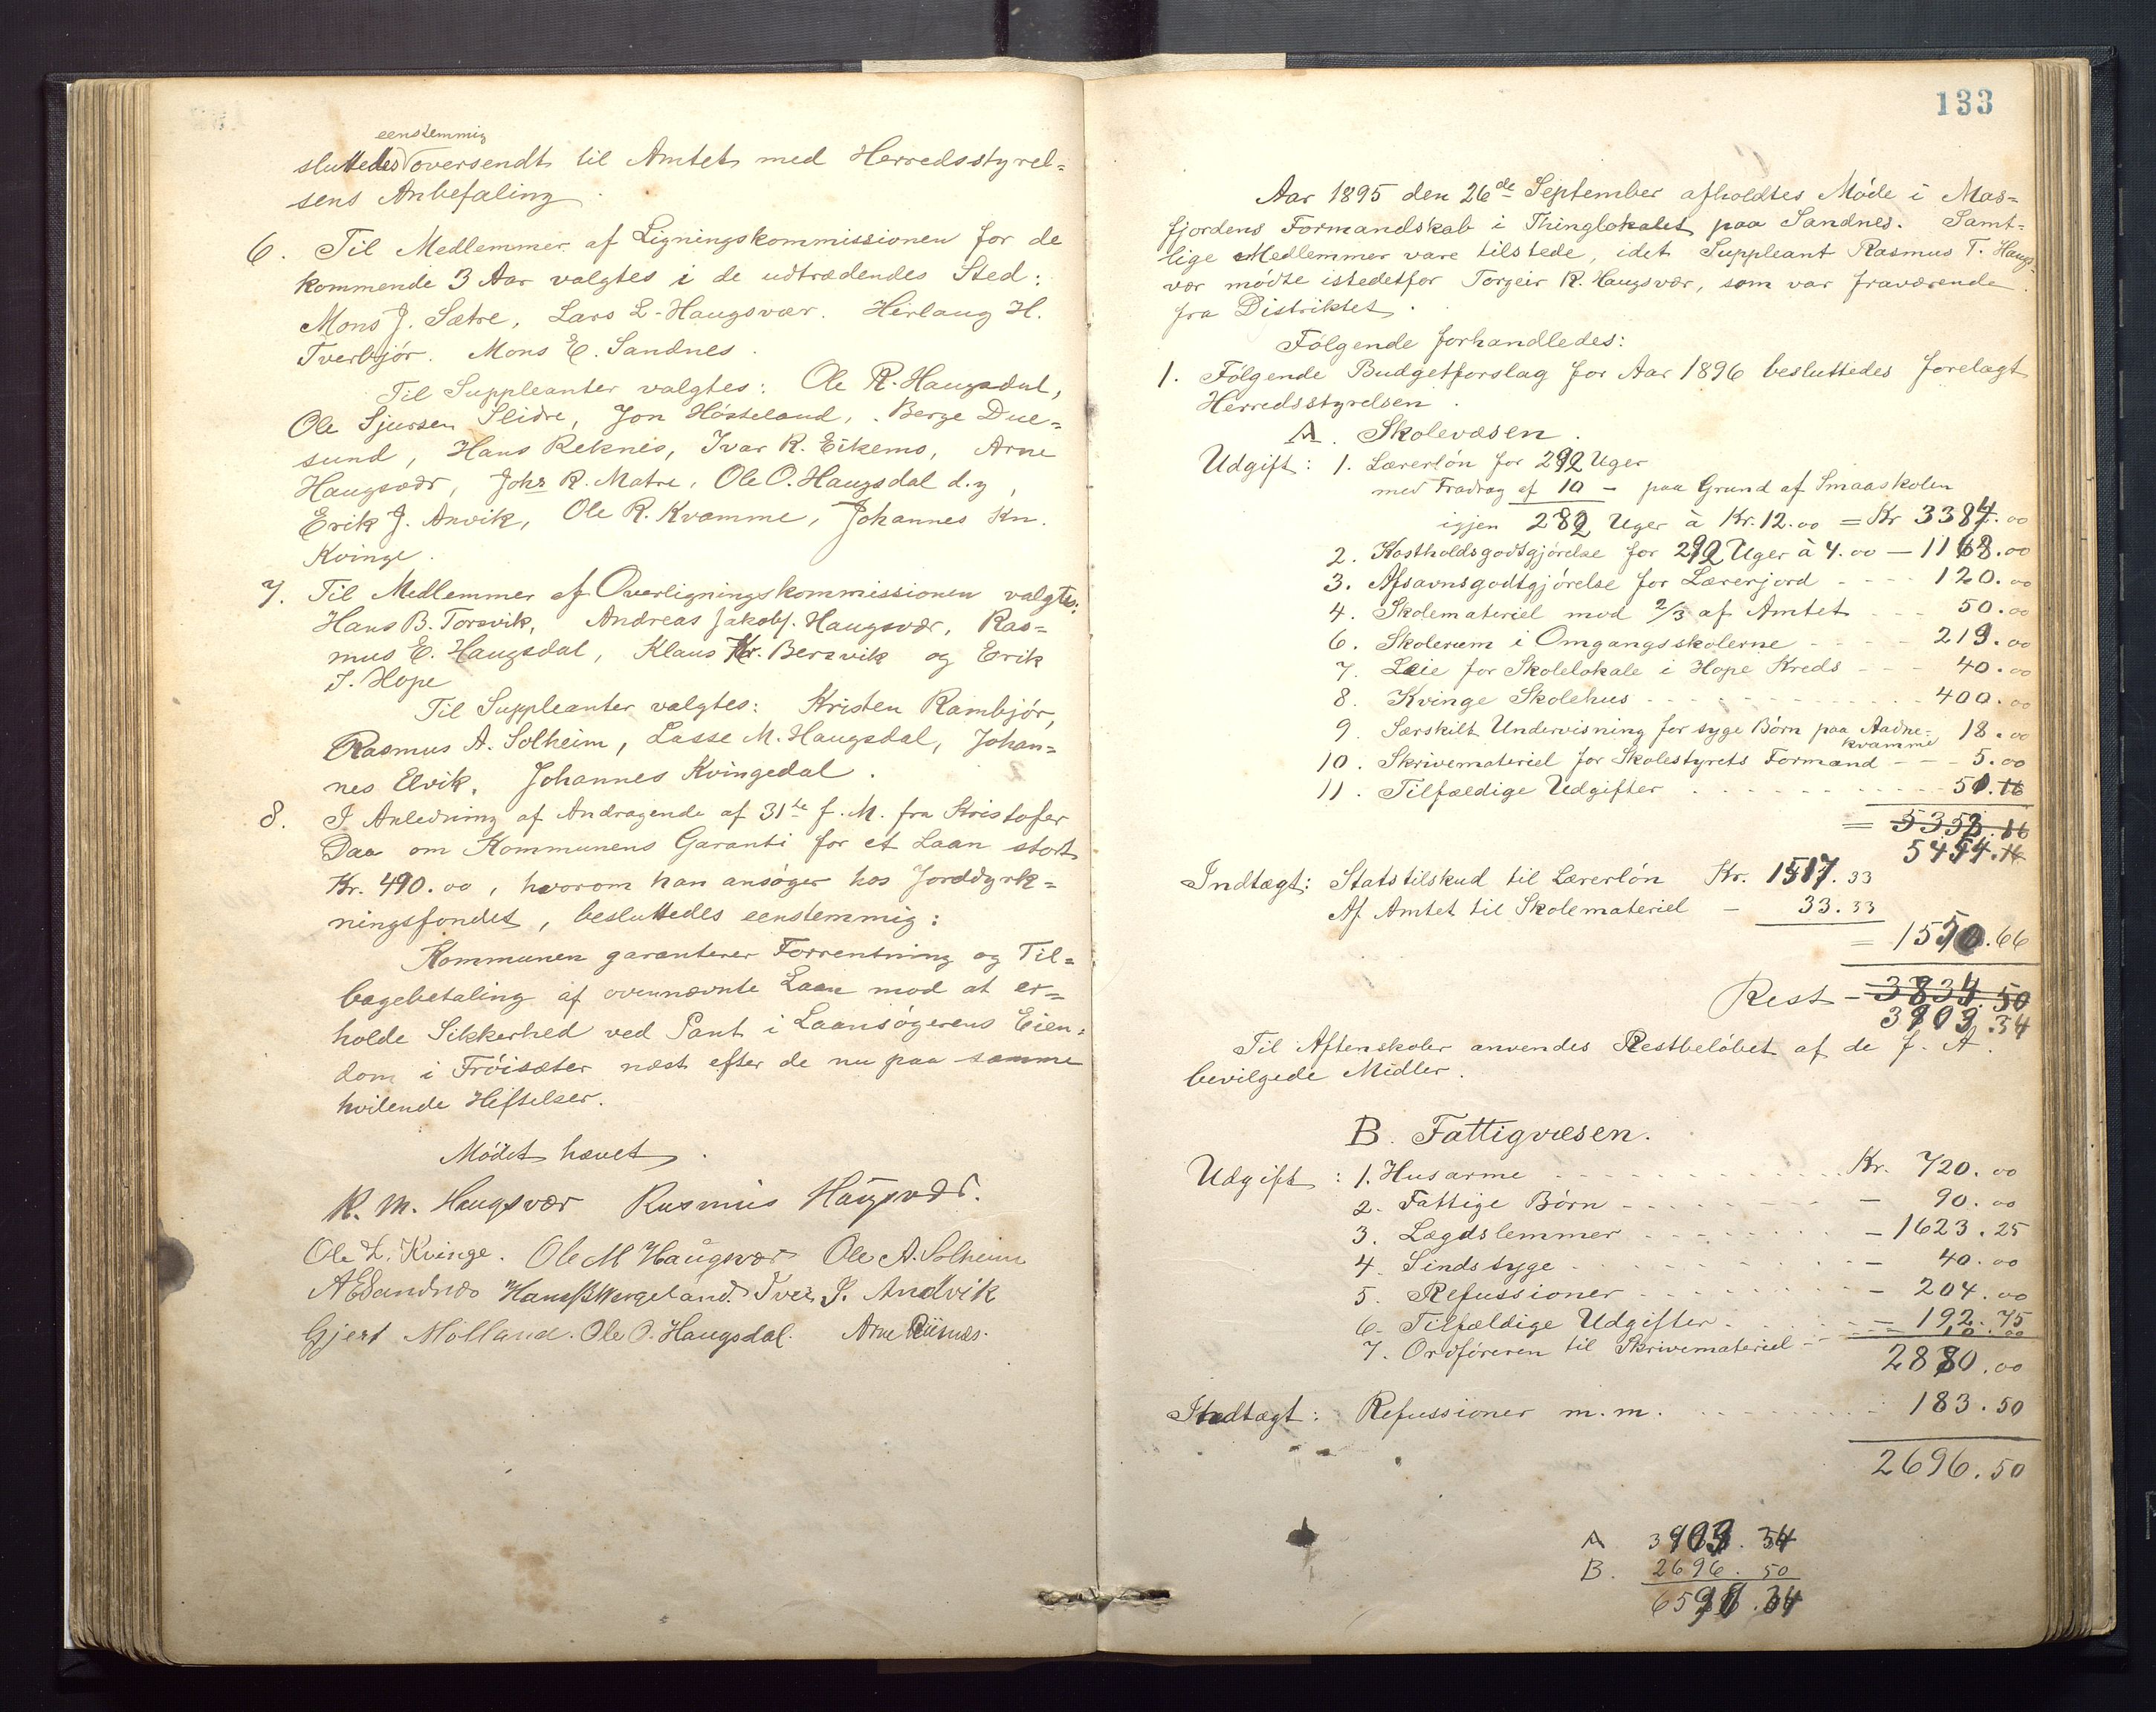 eenstemmig
sluttedes oversendt til Amtet med Herredsstyrel=
sens Anbefaling.
6. Til Medlemmer af Ligningskommissionen for de
kommende 3 Aar valgtes i de udtrædendes Sted:
Mons J. Sætre, Lars L. Haugsvær. Herlaug H.
Tverbjør. Mons E. Sandnes.
Til Suppleanter valgtes: Ole R. Haugsdal,
Ole Sjursen Slidre, Jon Hósteland, Berge Due=
sund, Hans Reknes, Ivar R. Eikemo, Arne
Haugsvær, Johs R. Matre, Ole O. Haugsdal d.y,
Erik J. Anvik, Ole R. Kvamme, Johannes Kn.
Kvinge.
7. Til Medlemmer af Overligningskommissionen valgtes:
Hans B. Torsvik, Andreas Jakobs. Haugsvær, Ras=
mus E. Haugsdal, Klaus Kr. Bersvik og Erik
J. Hope
Til Suppleanter valgtes: Kristen Rambjór,
Rasmus A. Solheim, Lasse M. Haugsdal, Johan=
nes Elvik, Johannes Kvingedal.
8. I Anledning af Andragende af 31te f. M. fra Kristofer
Daa om Kommunens Garanti for et Laan stort
Kr. 490.00, hvorom han ansøger hos Jorddyrk=
ningsfondet, besluttedes eenstemmig:
Kommunen garanterer Forrentning og Til=
bagebetaling af ovennævnte Laan mod at er=
holde Sikkerhed ved Pant i Laansøgerens Eien=
dom i Fróisæter næst efter de nu paa samme
hvilende Heftelser.
Mødet hævet.
R. M. Haugsvær Rasmus Haugsvær.
Ole L. Kvinge. Ole M Haugsvær Ole A. Solheim
A E Sandnes Hans B Wergeland. Iver J. Andvik
Gjert Molland. Ole O. Haugsdal. Arne Riisnes.
133
Aar 1895 den 26de September afholdtes Móde i Mas=
fjordens Formandskab i Thinglokalet paa Sandnes. Samt=
lige Medlemmer vare tilstede, idet Suppleant Rasmus T. Haugs=
vær mødte istedetfor Torgeir R. Haugsvær, som var fraværende
fra Distriktet.
Følgende forhandledes:
1. Følgende Budgetforslag for Aar 1896 besluttedes forelagt
Herredsstyrelsen.
A. Skolevæsen.
Udgift: 1. Lærerløn for 292 Uger
med Fradrag af 10 - paa Grund af Smaaskolen
igjen 282 Uger à Kr. 12.00 = Kr 3384.00
2. Kostholdsgodtgjórelse for 292 Uger à 4.00 — 1168.00
3. Afsavnsgodtgjórelse for Lærerjord - - - 120.00
4. Skolemateriel mod 2/3 af Amtet - - 50.00
6. Skolerum i Omgangsskolerne - - - 219.00
7. Leie for Skolelokale i Hope Kreds - - - 40.00
8. Kvinge Skolehus - - - 400.00
9. Særskilt Undervisning for syge Børn paa Aadne= 18.00
kvamme
10. Skrivemateriel for Skolestyrets Formand - - - 5.00
11. Tilfældige Udgifter - - - 50.16
= 5352.16
5454.16
Indtægt: Statstilskud til Lærerløn Kr. 1517.33
Af Amtet til Skolemateriel - 33.33
= 1550.66
Rest - 3834.50
3903.34
Til Aftenskoler anvendes Restbeløbet af de f. A.
bevilgede Midler.
B. Fattigvæsen.
Udgift: 1. Husarme - - - Kr. 720.00
2. Fattige Børn - - - 90.00
3. Lægdslemmer - - - 1623.25
4. Sindssyge - - - 40.00
5. Refussioner - - - 204.00
6. Tilfældige Udgifter - - - 192.75
7. Ordføreren til Skrivemateriel - - - 10.00
2880.00
Indtægt: Refussioner m.m. - - - 183.50
2696.50
A 3903.34
B. 2696.50